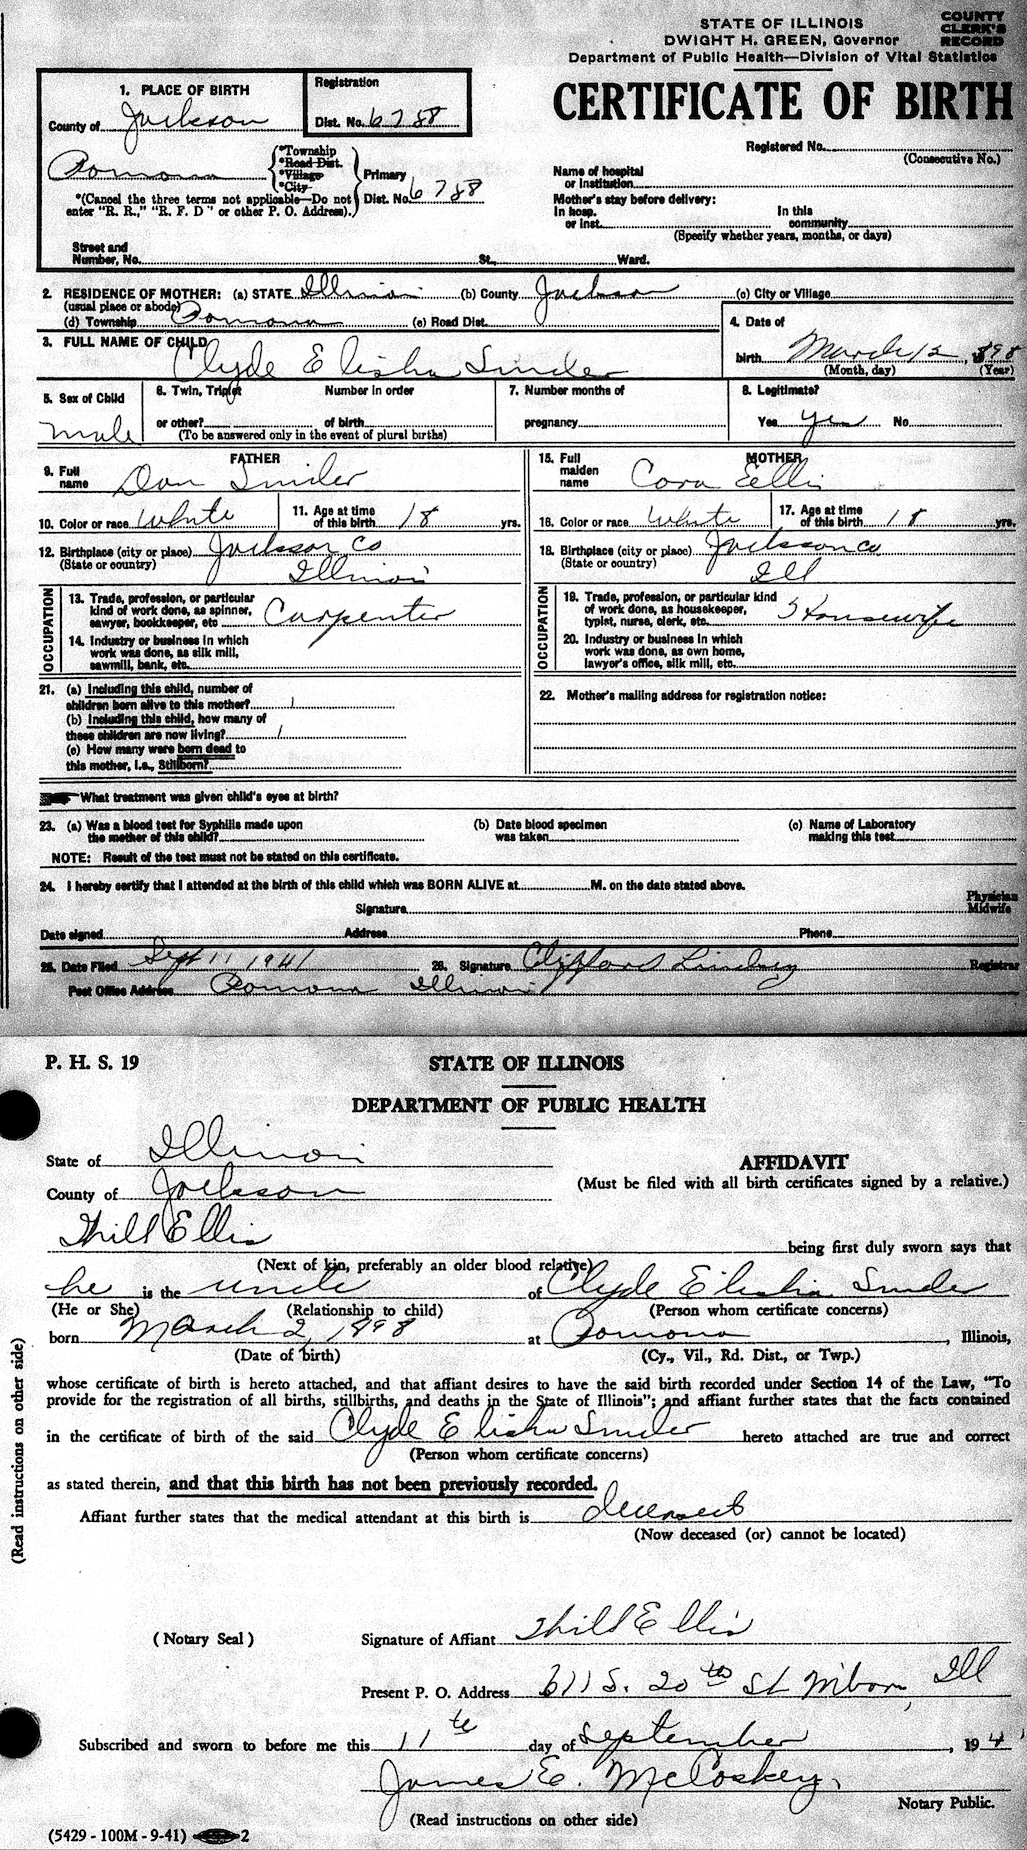 STATE OF ILLINOIS
DWIGHT H. GREEN, Governor
Department of Public Health—Division of Vital Statistics
COUNTY
CLERK'S
RECORD
CERTIFICATE OF BIRTH
1. PLACE OF BIRTH
County of Jackson
Registration
Dist. No. 6788
Pomona
*Township
*Road Dist.
*Village
*City
Primary
Dist. No. 6788
*(Cancel the three terms not applicable—Do not
enter "R. R.," "R. F. D" or other P. O. Address).
Street and
Number, No. St., Ward.
Registered No.
(Consecutive No.)
Name of hospital
or institution
Mother's stay before delivery:
In hosp. In this
or inst. community
(Specify whether years, months, or days)
2. RESIDENCE OF MOTHER: (a) STATE Illinois (b) County Jackson (c) City or Village
(usual place or abode)
(d) Township Pomona (e) Road Dist.
3. FULL NAME OF CHILD
Clyde Elisha Snider
4. Date of
birth March 2, 1898
(Month, day) (Year)
5. Sex of Child
male
6. Twin, Triplet Number in order
or other? of birth
(To be answered only in the event of plural births)
7. Number months of
pregnancy
8. Legitimate?
Yes yes No
FATHER
9. Full
name Dan Snider
10. Color or race White
11. Age at time
of this birth 18 yrs.
12. Birthplace (city or place) Jackson Co
(State or country) Illinois
OCCUPATION
13. Trade, profession, or particular
kind of work done, as spinner,
sawyer, bookkeeper, etc Carpenter
14. Industry or business in which
work was done, as silk mill,
sawmill, bank, etc.
MOTHER
15. Full
maiden
name Cora Ellis
16. Color or race White
17. Age at time
of this birth 18 yrs.
18. Birthplace (city or place) Jackson Co
(State or country) Ill
OCCUPATION
19. Trade, profession, or particular kind
of work done, as housekeeper,
typist, nurse, clerk, etc. Housewife
20. Industry or business in which
work was done, as own home,
lawyer's office, silk mill, etc.
21. (a) Including this child, number of
children born alive to this mother? 1
(b) Including this child, how many of
these children are now living? 1
(c) How many were born dead to
this mother, i.e., Stillborn?
22. Mother's mailing address for registration notice:
What treatment was given child's eyes at birth?
23. (a) Was a blood test for Syphilis made upon
the mother of this child?
(b) Date blood specimen
was taken
(c) Name of Laboratory
making this test
NOTE: Result of the test must not be stated on this certificate.
24. I hereby certify that I attended at the birth of this child which was BORN ALIVE at M. on the date stated above.
Signature Physician
Midwife
Date signed Address Phone
25. Date Filed Sept 11 1941 26. Signature Clifford Lindsey Registrar
Post Office Address Pomona Illinois
P. H. S. 19
STATE OF ILLINOIS
DEPARTMENT OF PUBLIC HEALTH
State of Illinois
County of Jackson
AFFIDAVIT
(Must be filed with all birth certificates signed by a relative.)
Thill Ellis being first duly sworn says that
(Next of kin, preferably an older blood relative)
he is the uncle of Clyde Elisha Snider
(He or She) (Relationship to child) (Person whom certificate concerns)
born March 2, 1898 at Pomona, Illinois,
(Date of birth) (Cy., Vil., Rd. Dist., or Twp.)
whose certificate of birth is hereto attached, and that affiant desires to have the said birth recorded under Section 14 of the Law, "To
provide for the registration of all births, stillbirths, and deaths in the State of Illinois"; and affiant further states that the facts contained
in the certificate of birth of the said Clyde Elisha Snider hereto attached are true and correct
(Person whom certificate concerns)
as stated therein, and that this birth has not been previously recorded.
Affiant further states that the medical attendant at this birth is deceased
(Now deceased (or) cannot be located)
(Read instructions on other side)
(Notary Seal)
Signature of Affiant Thill Ellis
Present P. O. Address 611 S. 20th St Ill
Subscribed and sworn to before me this 11th day of September, 194
James E. McCoskey,
Notary Public.
(Read instructions on other side)
(5429 - 100M - 9-41) 2